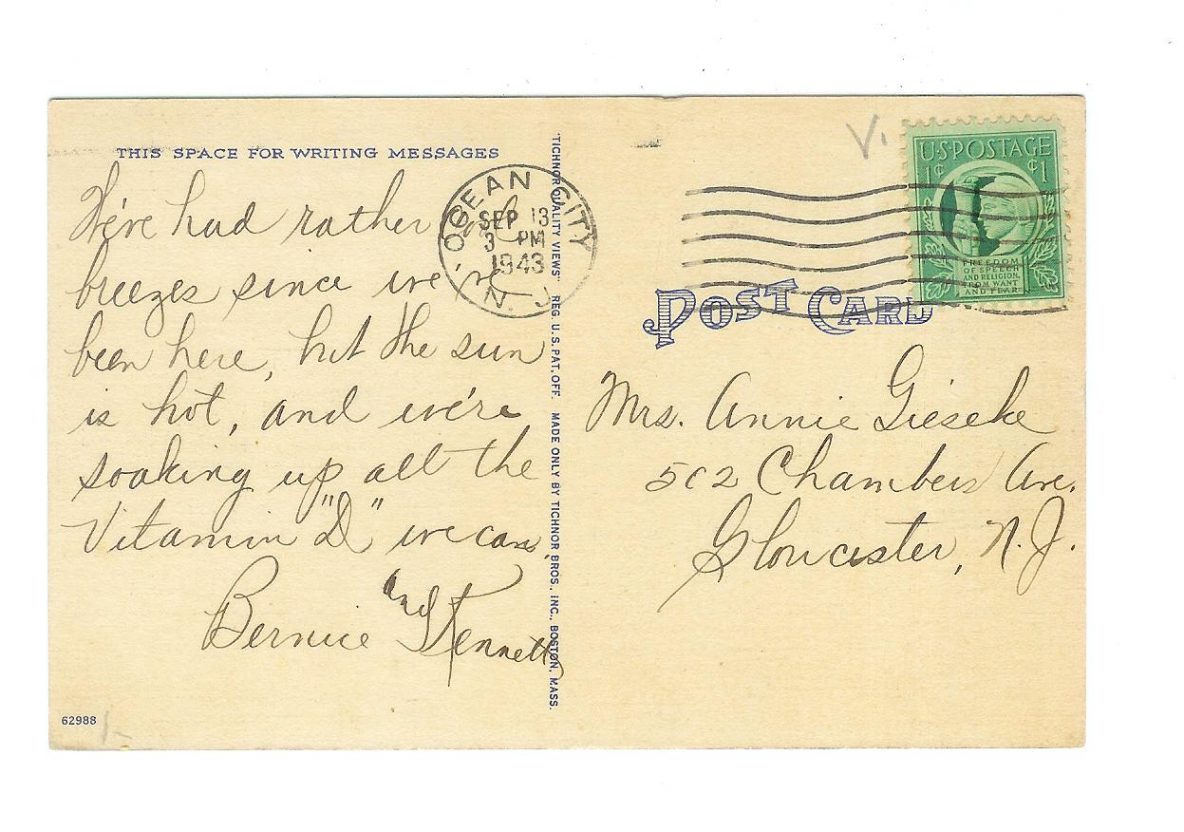 THIS SPACE FOR WRITING MESSAGES
We've had rather
breezes since we've
been here, but the sun
is hot, and we're
soaking up all the
Vitamin "D" we can.
Bernice and Kenneth
62988
OCEAN CITY
SEP 13
3 PM
1943
N. J.
"TICHNOR QUALITY VIEWS" REG. U. S. PAT. OFF. MADE ONLY BY TICHNOR BROS., INC., BOSTON, MASS.
V.
U·S·POSTAGE
1¢ ¢1
FREEDOM
OF SPEECH
AND RELIGION,
FROM WANT
AND FEAR
POST CARD
Mrs. Annie Gieseke
502 Chambers Ave.
Gloucester, N.J.